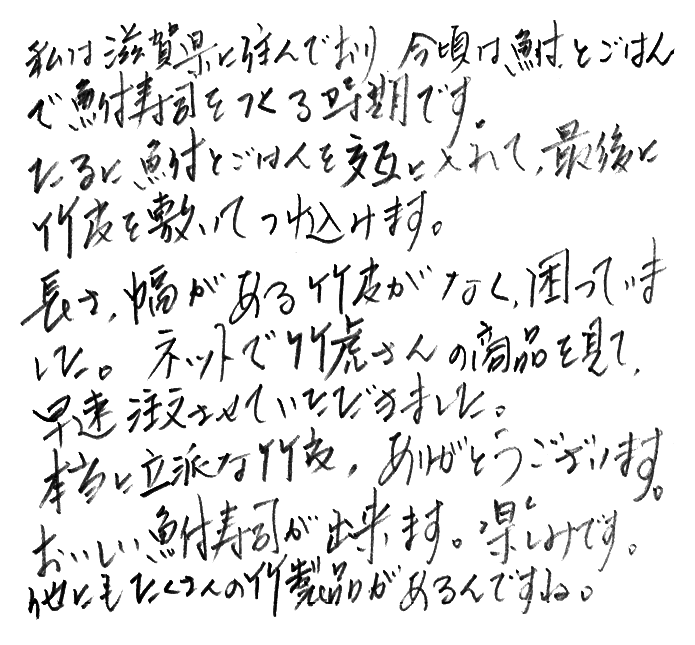 私は滋賀県に住んでおり 今頃は鮒とごはん
で鮒寿司をつくる時期です。
たるに鮒とごはんを交互に入れて、最後に
竹皮を敷いてつけ込けます。
長さ、幅がある竹皮がなく、困っていま
した。ネットで竹虎さんの商品を見て、
早速注文させていただきました。
本当に立派な竹皮、ありがとうございます。
おいしい鮒寿司が出来ます。楽しみです。
他にもたくさんの竹製品があるんですね。